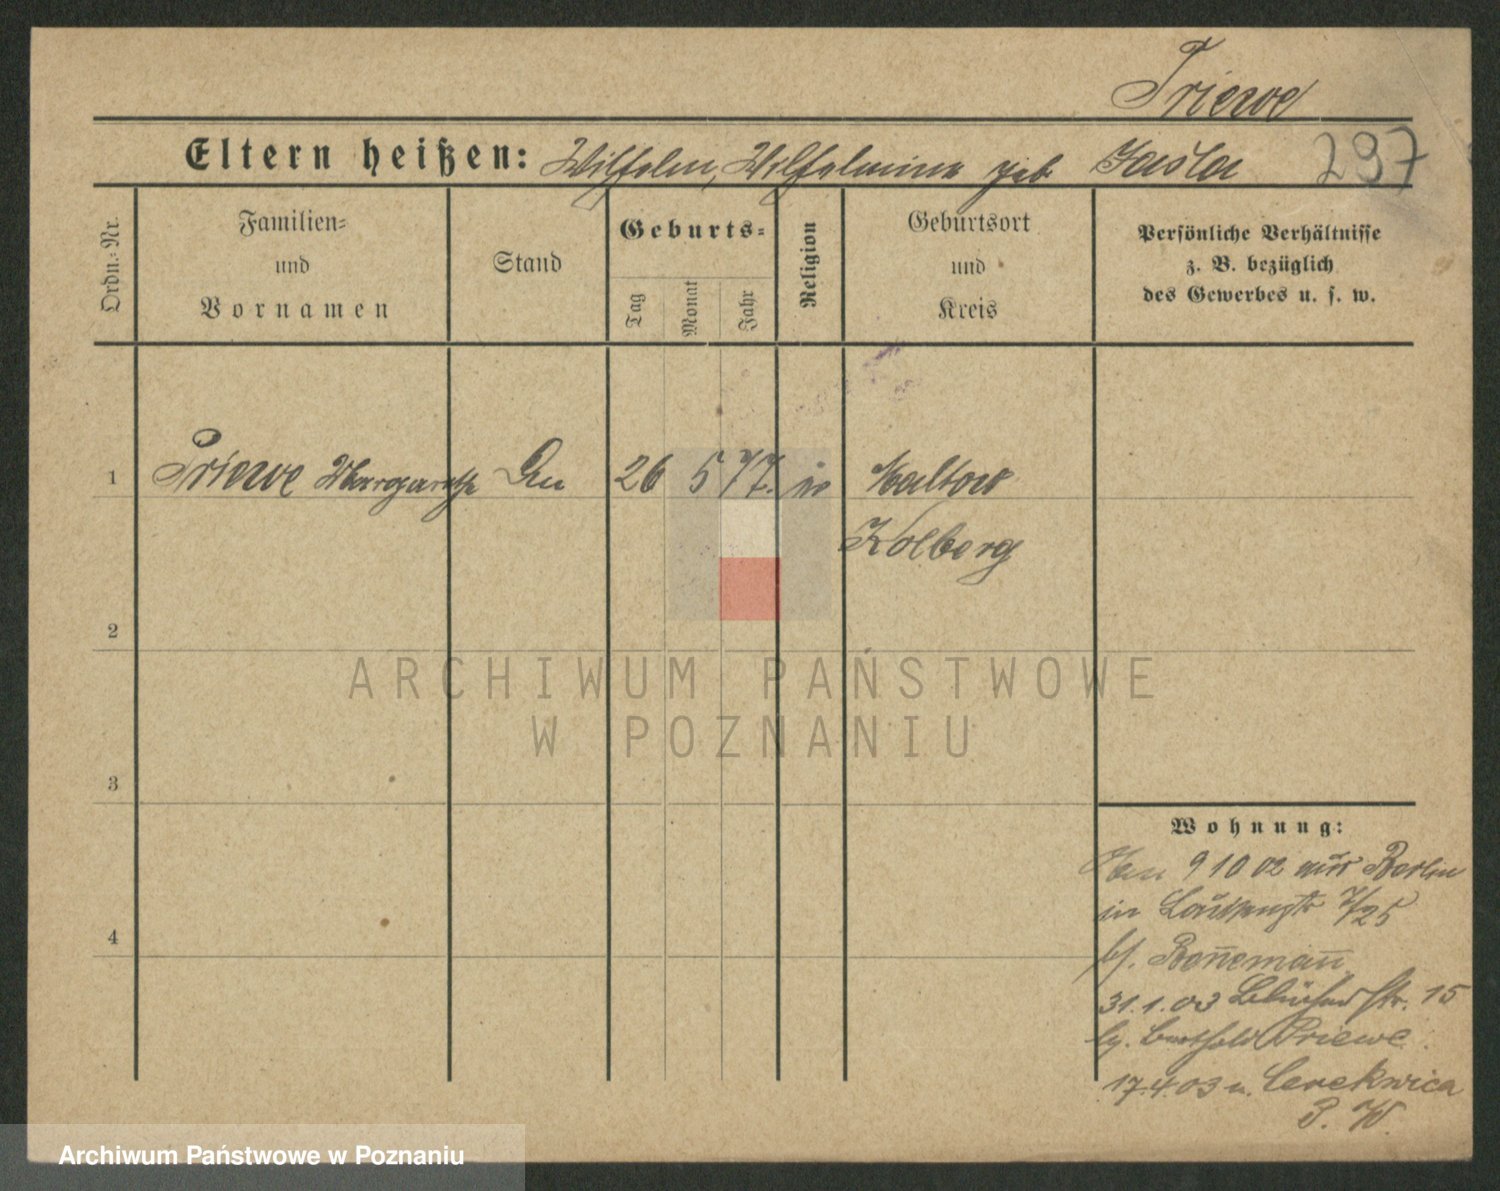 Priewe
Eltern heißen: Wilhelm, Wilhelmine geb.
297
Ordn.-Nr.
Familien-
und
Vornamen
Stand
Geburts-
Tag
Monat
Jahr
Religion
Geburtsort
und
Kreis
Persönliche Verhältnisse
z. B. bezüglich
des Gewerbes u. s. w.
1 Priewe Margarethe 26 5 77. Maltow
Kolberg
2
3
4
Wohnung:
9 10 02 aus Berlin
in 7/25
bei Bennemann
31.1.03 Blücherstr. 15
Berthold Priewe
17.4.03 n. Cerekwica
P. W.
ARCHIWUM PAŃSTWOWE
W POZNANIU
Archiwum Państwowe w Poznaniu